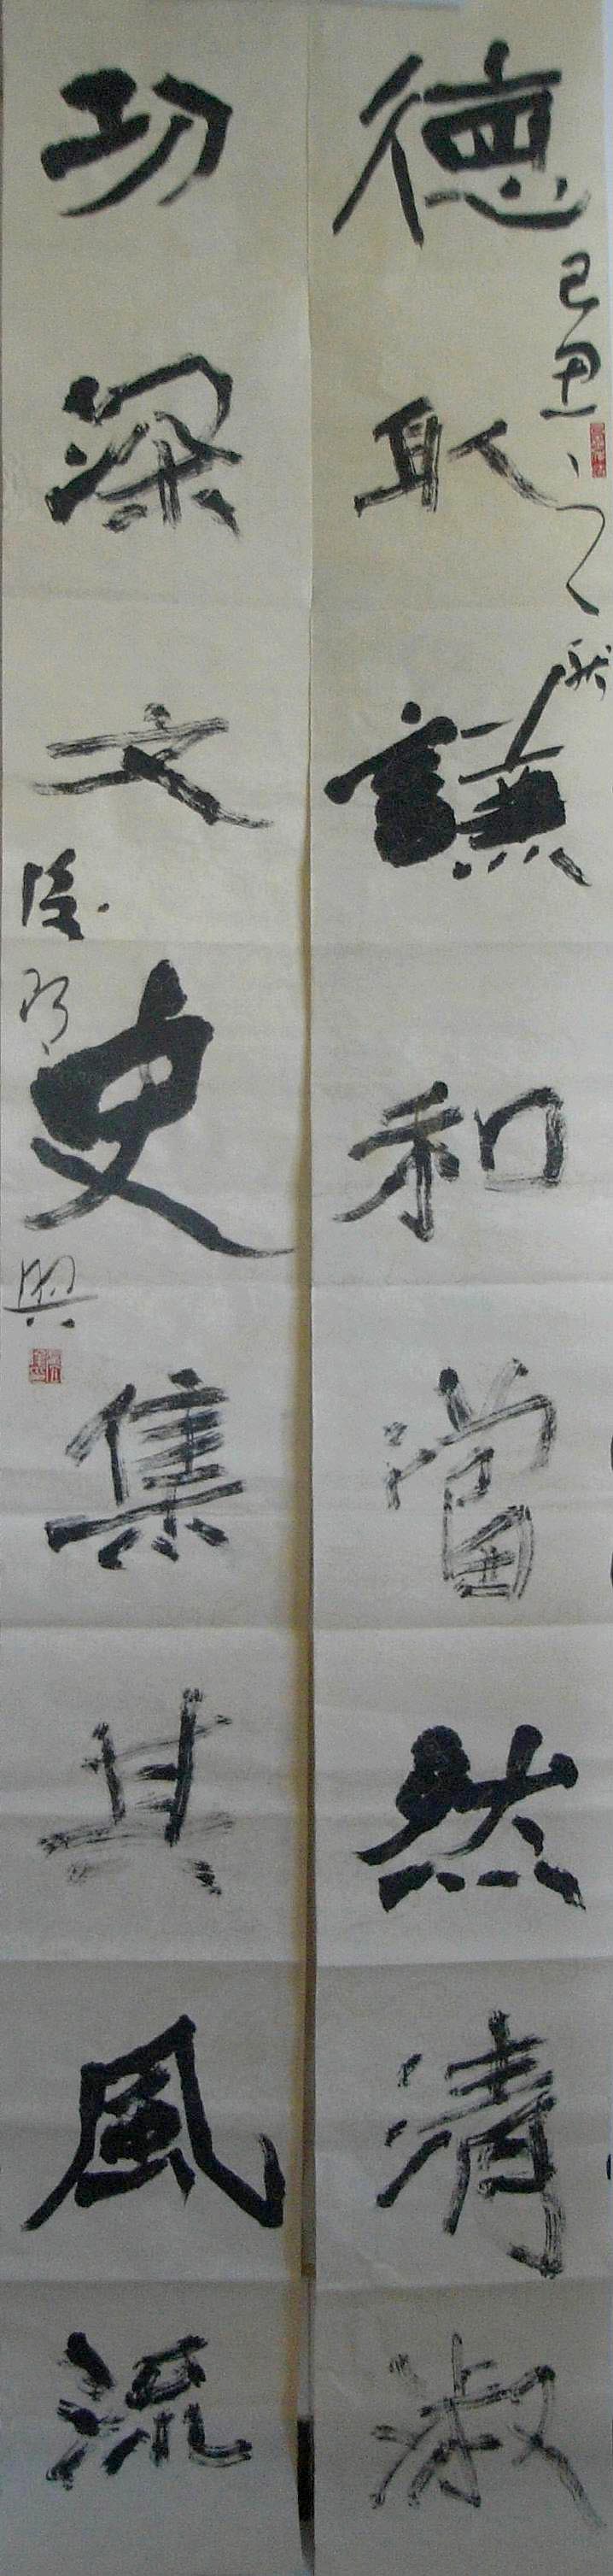 德取謙和當然清淑
己丑之秋
功深文史集其風流